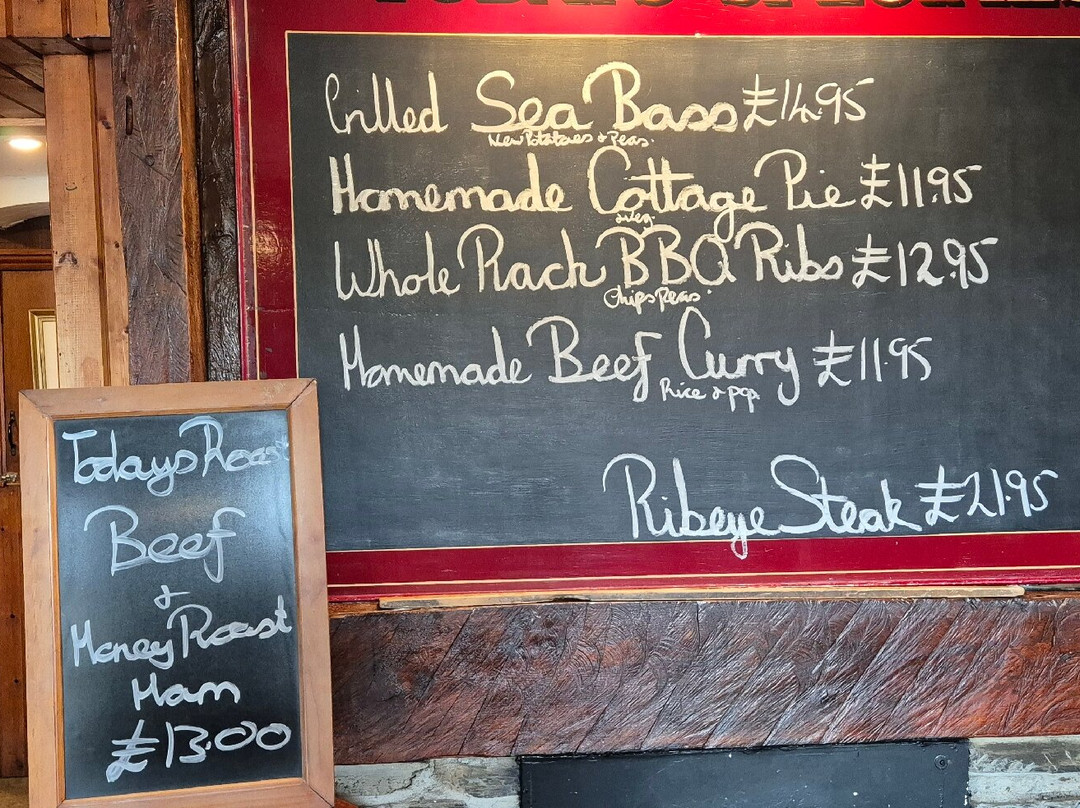 Grilled Sea Bass £14.95
New Potatoes & Peas.
Homemade Cottage Pie £11.95
& veg.
Whole Rack BBQ Ribs £12.95
Chips Peas.
Homemade Beef Curry £11.95
Rice & pop.
Ribeye Steak £21.95
Todays Roast
Beef
&
Honey Roast
Ham
£13.00